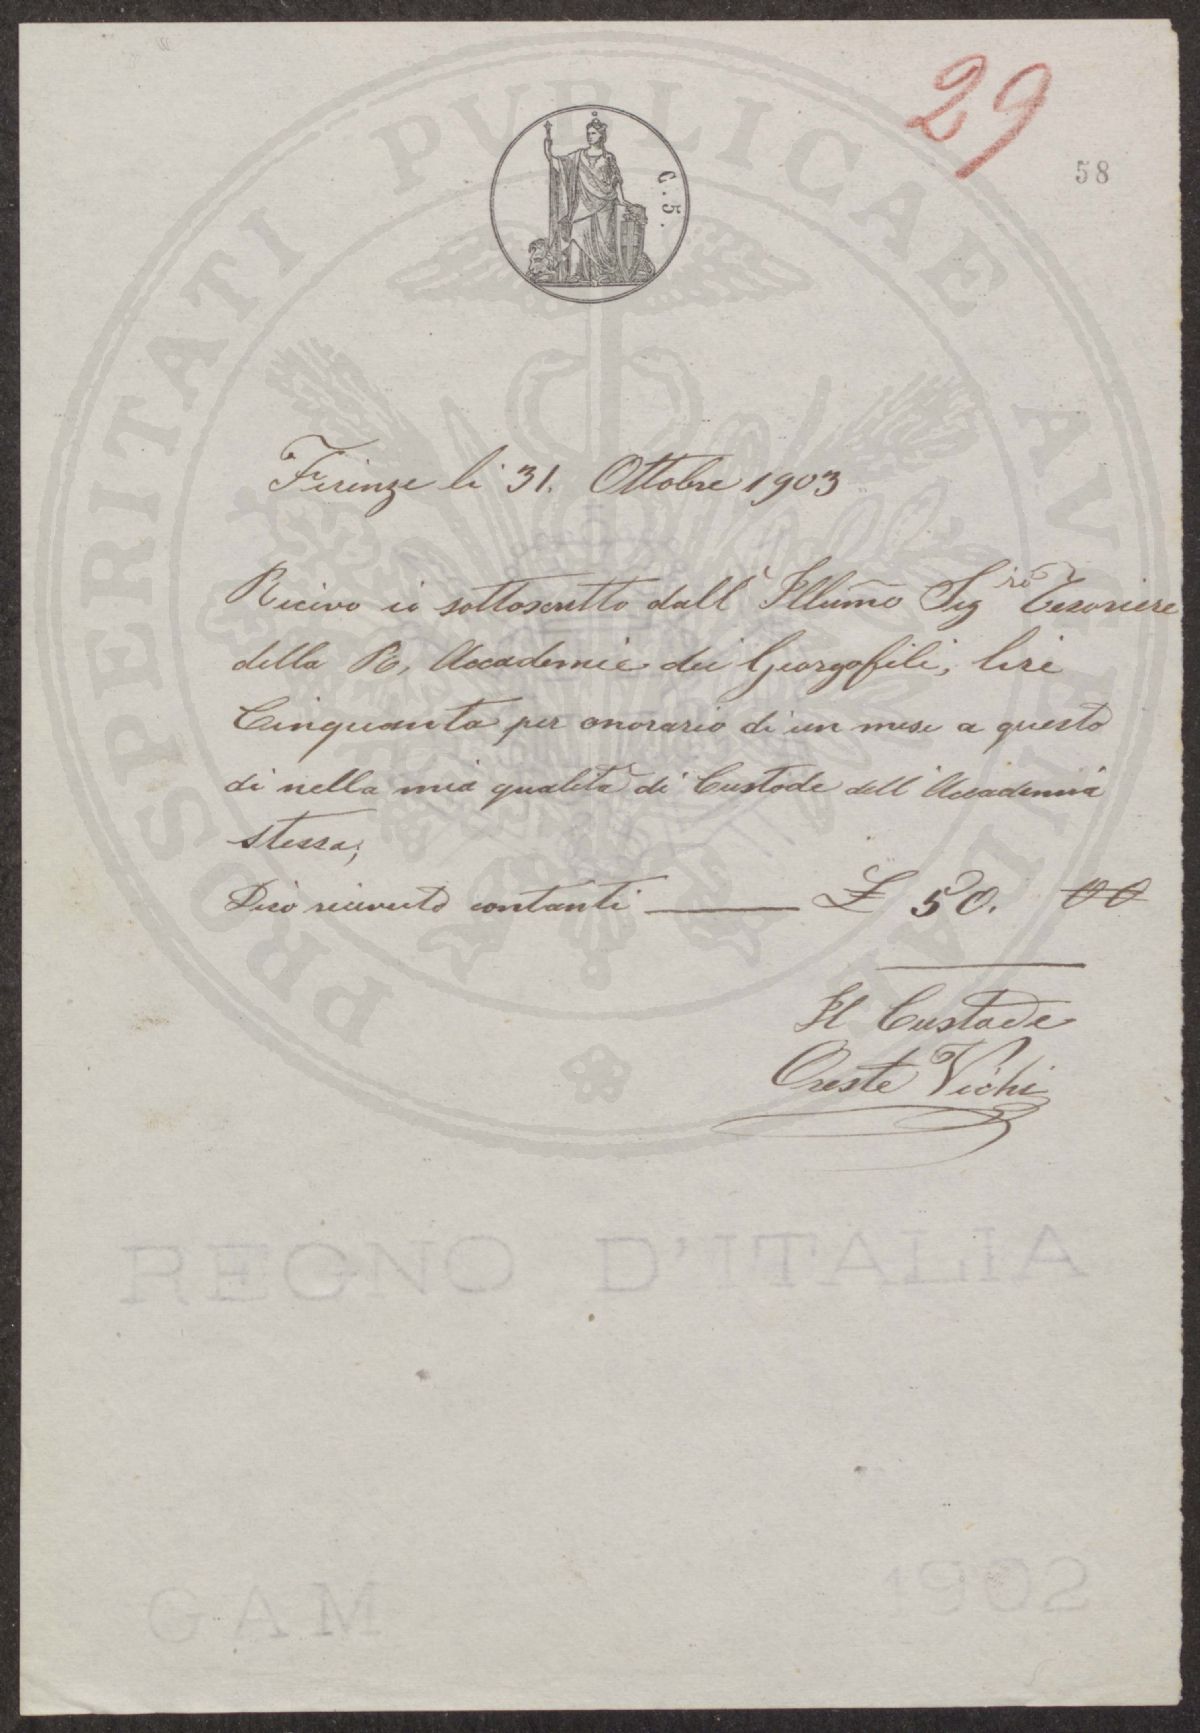 29
58
C. 5.
PROSPERITATI PUBLICAE AVGENDAE
Firenze li 31. Ottobre 1903
Ricivo io sottoscritto dall' Illumo Sigre Tesoriere
della R. Accademia dei Georgofili, lire
Cinquanta per onorario di un mese a questo
di nella mia qualità di Custode dell' Accademia
stessa;
Dico ricevuto contanti — £ 50. 00
Il Custode
Oreste Vichi
REGNO D'ITALIA
GAM 1902